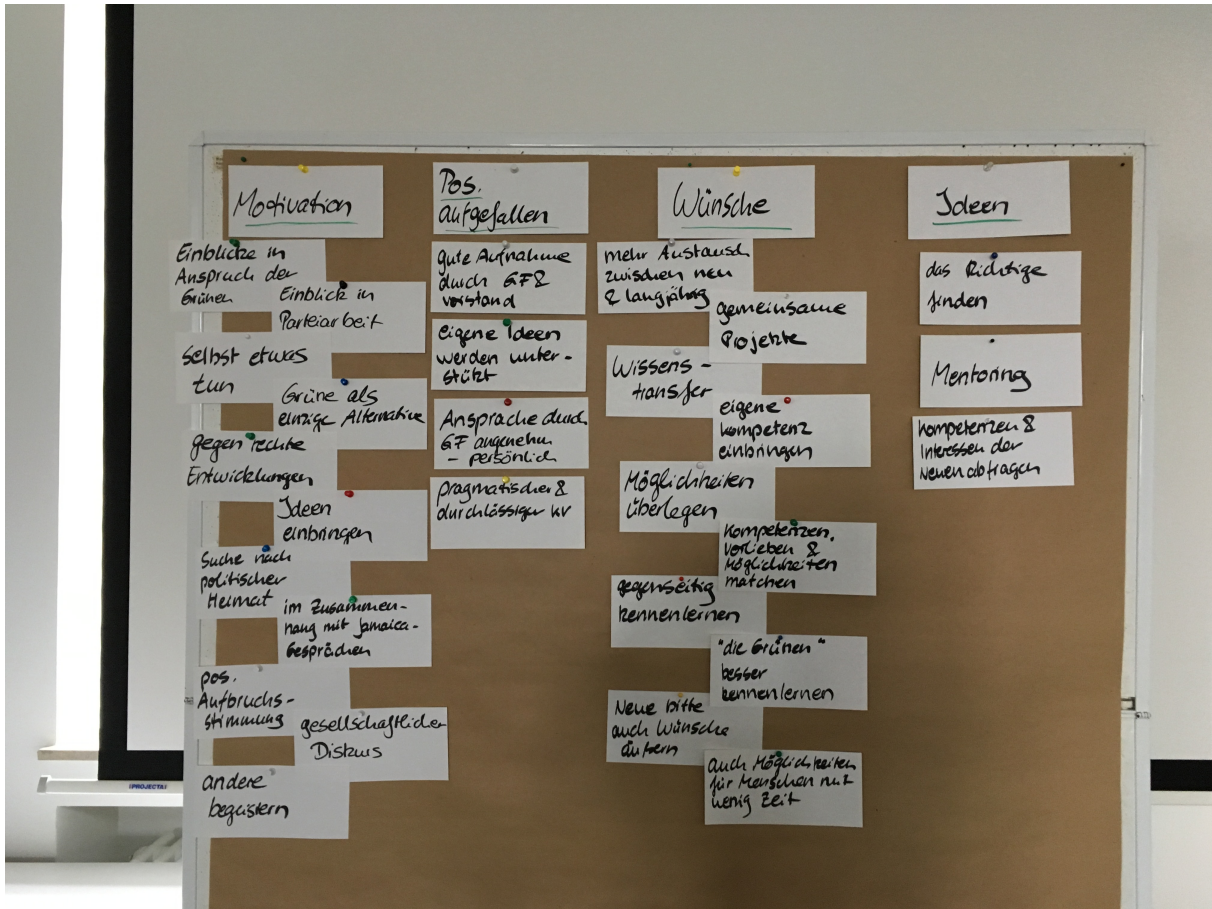 Motivation
Einblicke in
Anspruch der
Grünen
Einblick in
Parteiarbeit
selbst etwas
tun
Grüne als
einzige Alternative
gegen rechte
Entwicklungen
Ideen
einbringen
Suche nach
politischer
Heimat
im Zusammen-
hang mit Jamaica-
Gesprächen
pos.
Aufbruchs-
stimmung
gesellschaftlicher
Diskurs
andere
begeistern
Pos.
aufgefallen
gute Aufnahme
durch GF &
Vorstand
eigene Ideen
werden unter-
stützt
Ansprache durch
GF angenehm
- persönlich
pragmatischer &
durchlässiger KV
Wünsche
mehr Austausch
zwischen neu
& langjährig
gemeinsame
Projekte
Wissens-
transfer
eigene
Kompetenz
einbringen
Möglichkeiten
überlegen
Kompetenzen,
Vorlieben &
Möglichkeiten
matchen
gegenseitig
kennenlernen
"die Grünen"
besser
kennenlernen
Neue bitte
auch Wünsche
äußern
auch Möglichkeiten
für Menschen mit
wenig Zeit
Ideen
das Richtige
finden
Mentoring
Kompetenzen &
Interessen der
Neuen abfragen
PROJECTA